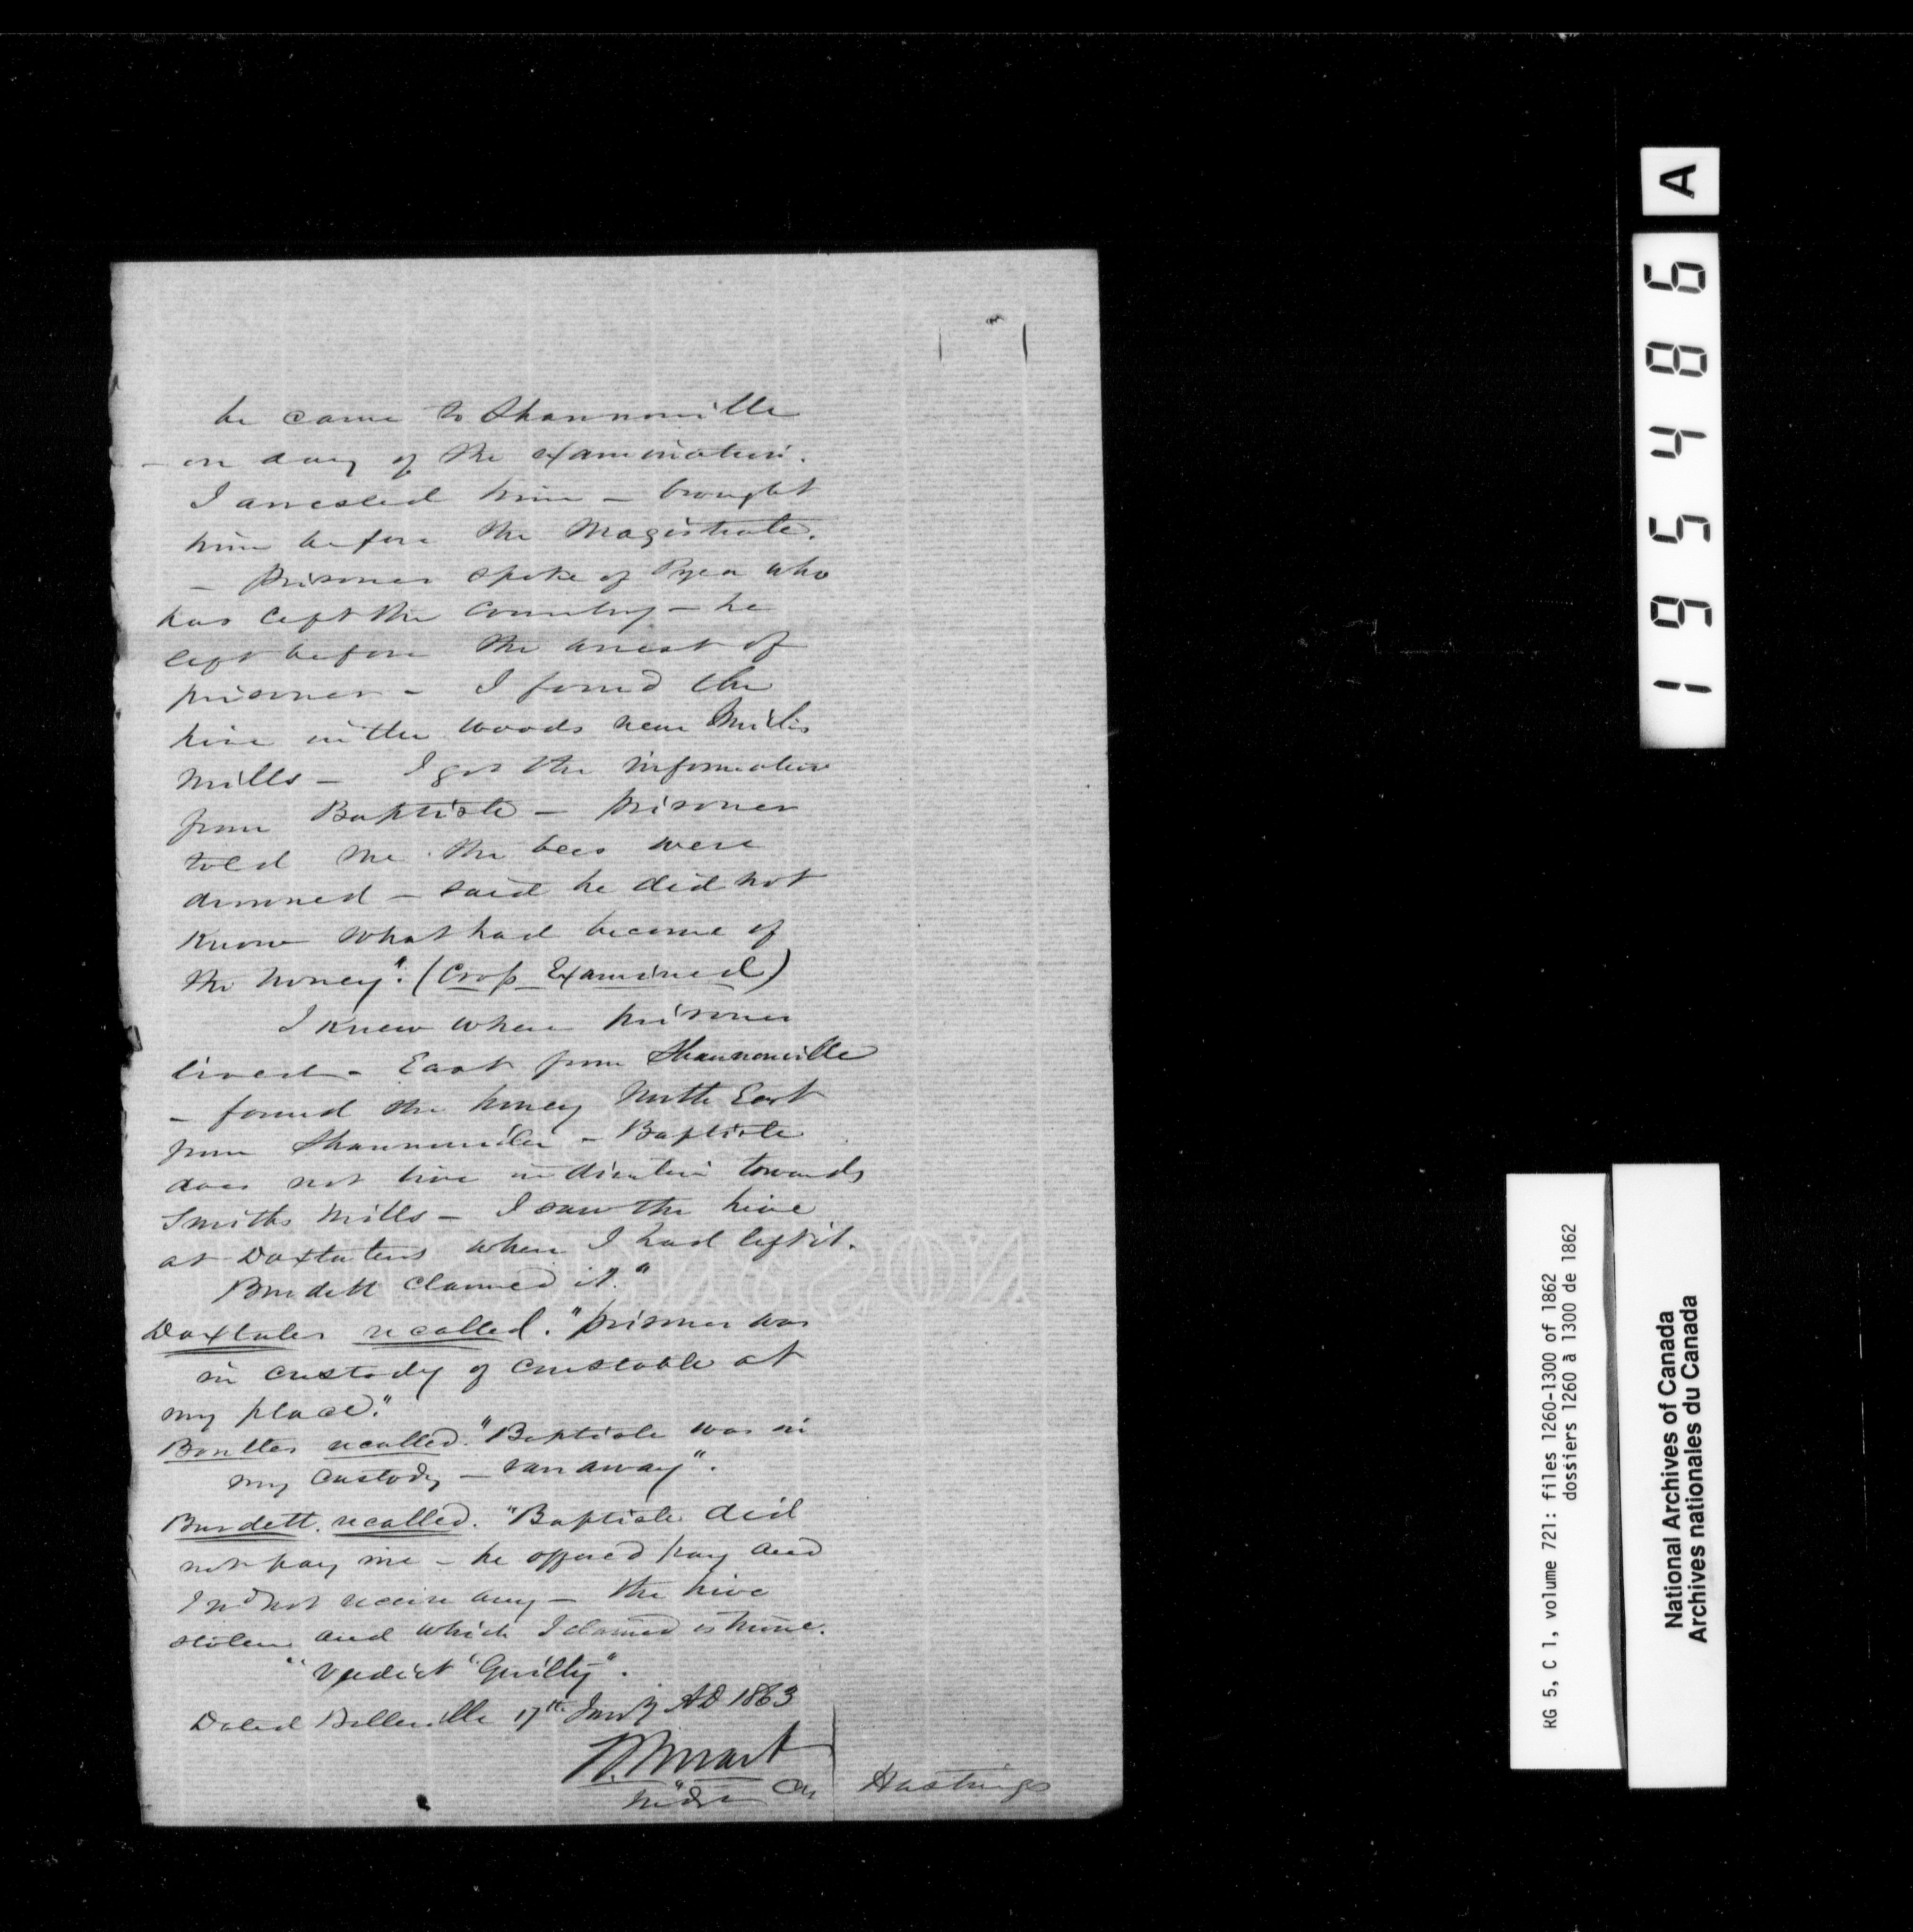 he came to Shannonville
- on day of the examination.
I arrested him - brought
him before the Magistrate.
- prisoner spoke of who
has left the Country - he
left before the arrest of
prisoner - I found the
hive in the woods near Smiths
Mills - I got the information
from Baptiste - prisoner
told me the bees were
drowned - said he did not
know what had become of
the honey". (Cross Examined)
I knew where prisoner
lived - East from Shannonville
- found the honey North East
from Shannonville - Baptiste
does not live in direction towards
Smiths Mills - I saw the hive
at Daxtaters where I had left it.
Burdett claimed it."
Daxtater recalled. "prisoner was
in custody of Constable at
my place."
Boulter recalled. "Baptiste was in
my custody - ran away".
Burdett recalled. "Baptiste did
not pay me - he offered pay and
I not receive any - the hive
stolen and which I claimed is mine.
" Verdict "Guilty".
Dated Belleville 17th Jany AD 1863
Co Hastings
A
195486
RG 5, C 1, volume 721: files 1260-1300 of 1862
dossiers 1260 à 1300 de 1862
National Archives of Canada
Archives nationales du Canada